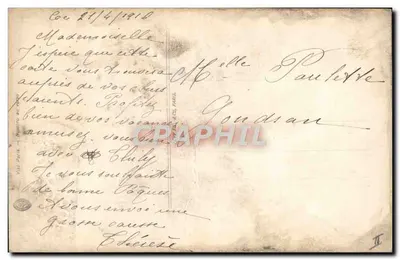 Ce 21/4/1916
Mademoiselle
J'espère que cette
carte vous trouvera
auprès de vos
parents. Profitez
bien de vos vacances
amusez vous
avec
Je vous souhaite
de bonne Pâques
et vous envoi une
grosse
Thérèse
Melle Paulette
Gondran
CPARAMA
II